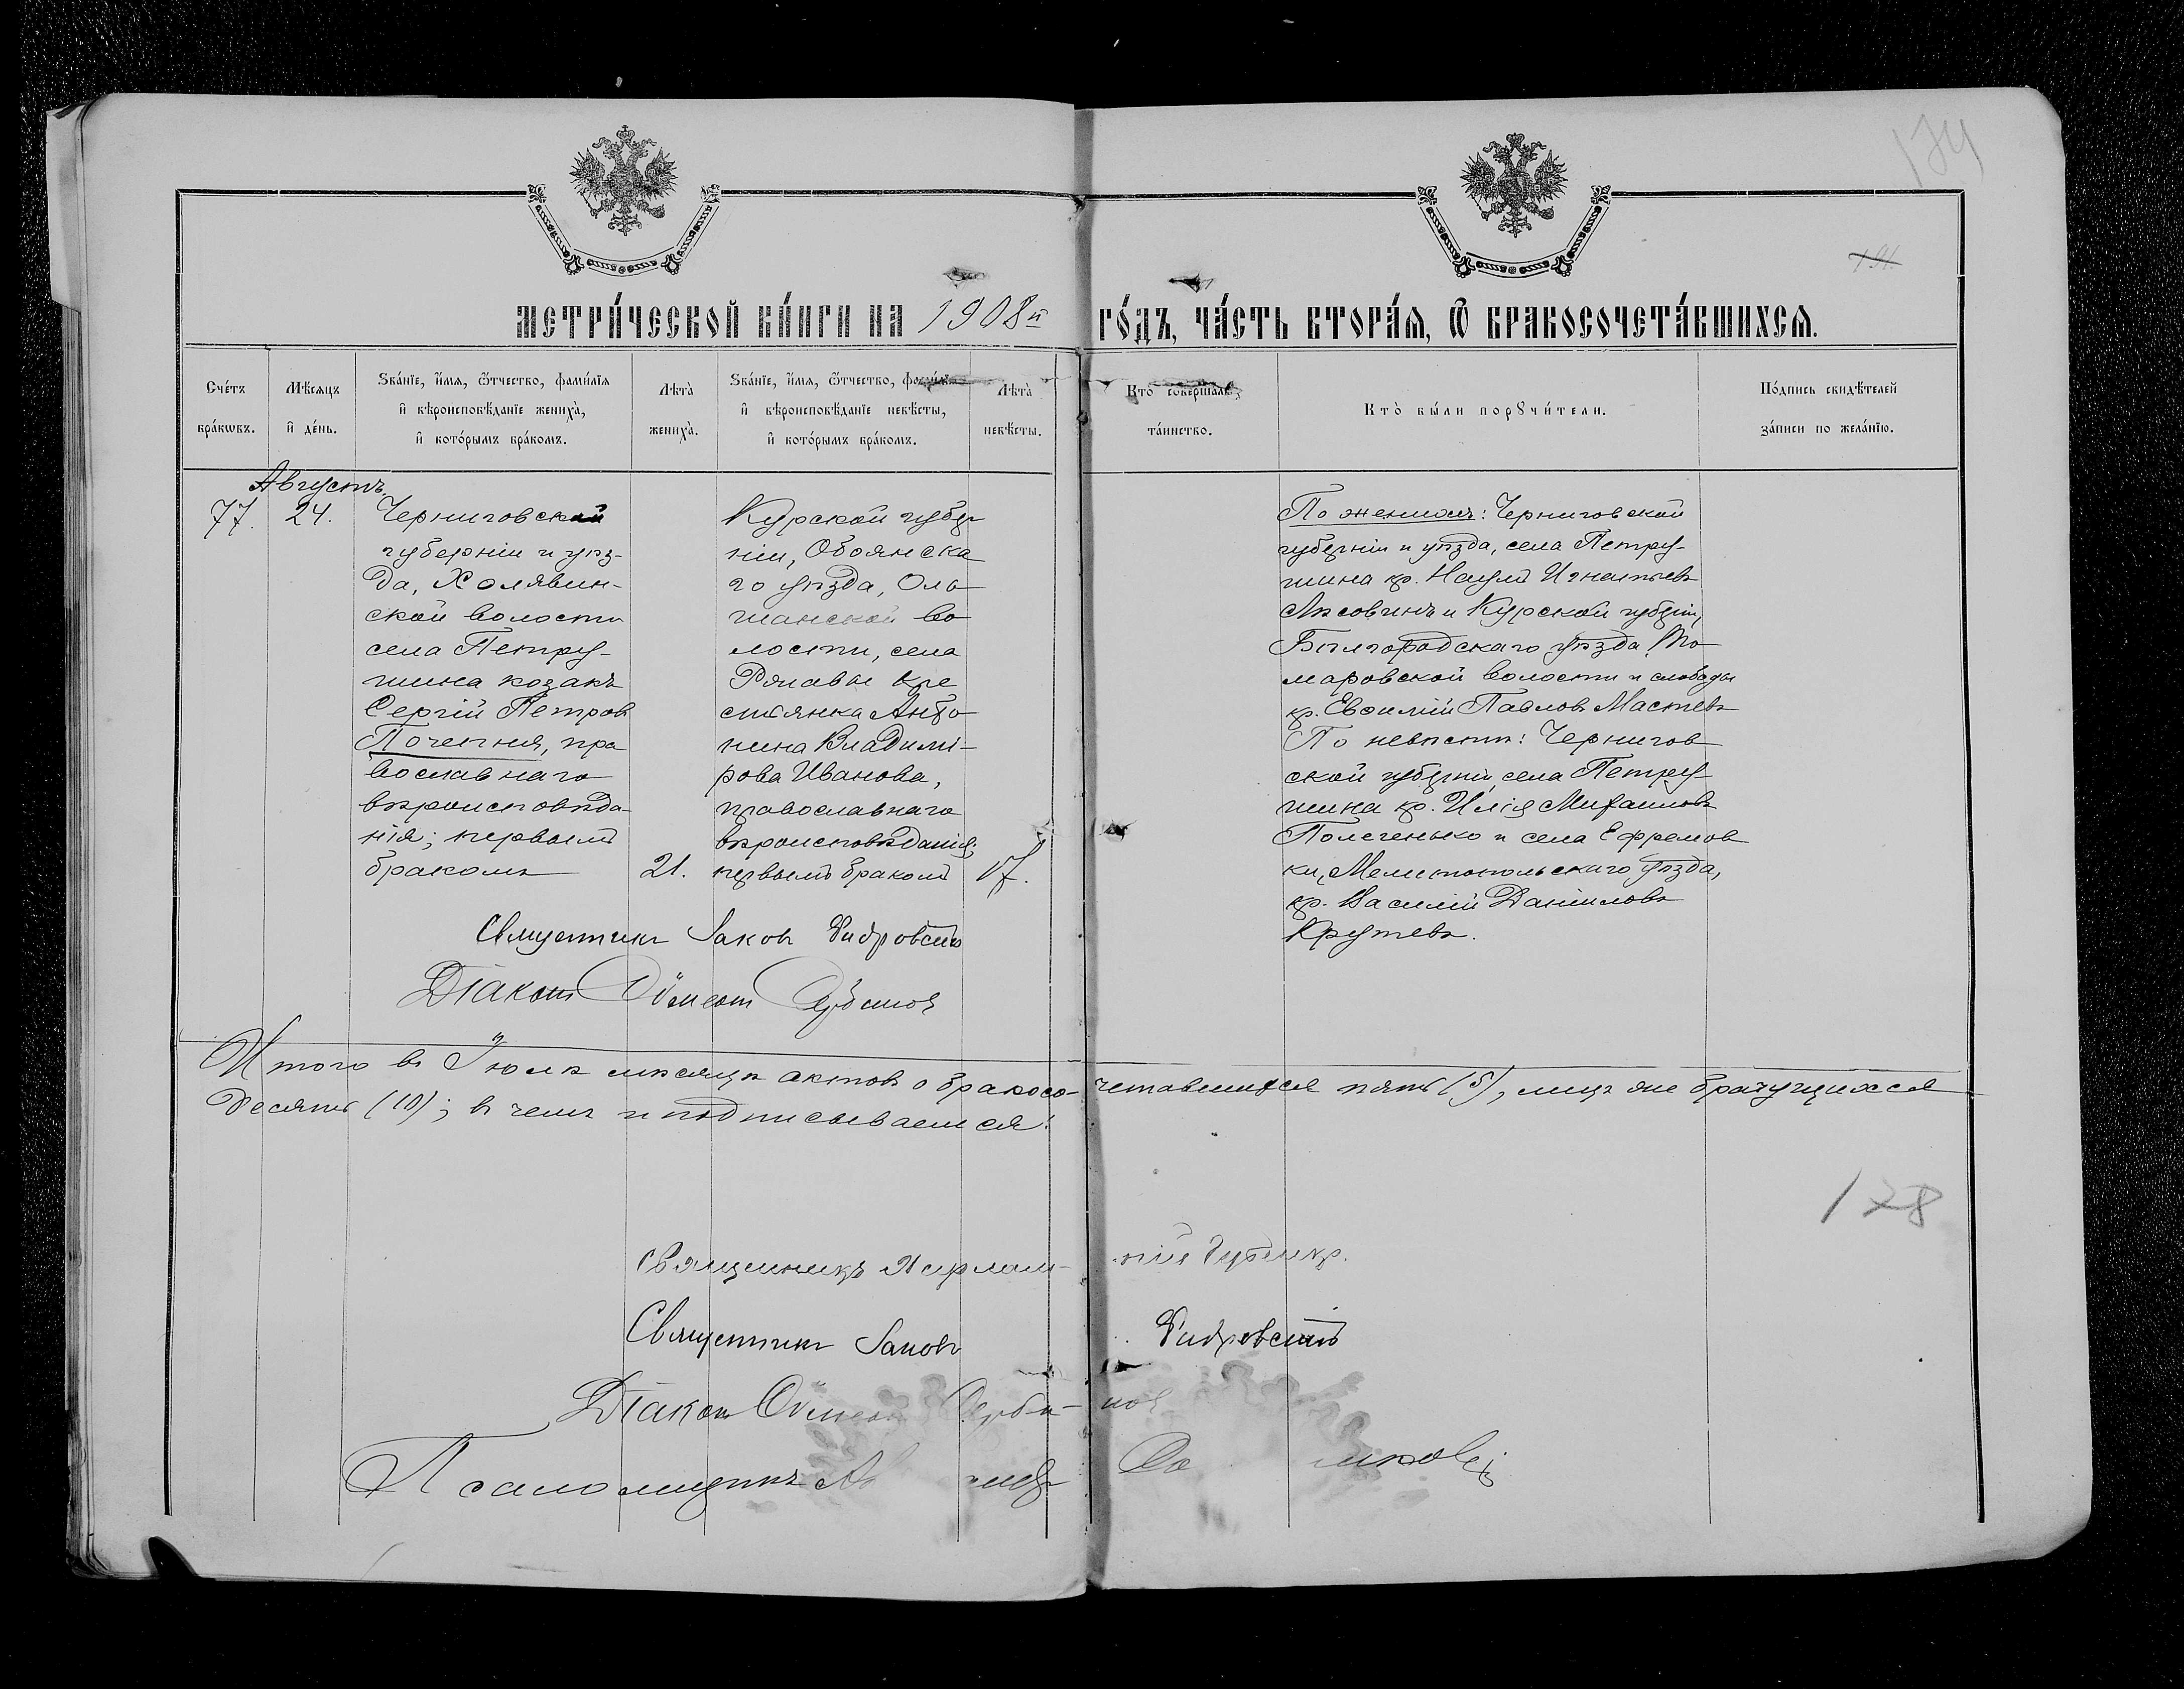 174
191.
МЕТРИ́ЧЕСКОЙ КНИ́ГИ НА 1908й ГО́ДЪ, ЧА́СТЬ ВТОРА́Ѧ, Ѿ БРАКОСОЧЕТА́ВШИХСѦ.
Сче́тъ бра́кѡвъ.
Мѣ́сяцъ и҆ де́нь.
Ѕва́нїе, и҆́мѧ, ѻ҆́тчество, фами́лїѧ
и҆ вѣроисповѣ́данїе жениха̀,
и҆ кото́рымъ бра́комъ.
Лѣта̀ жениха̀.
Ѕва́нїе, и҆́мѧ, ѻ҆́тчество, фами́лїѧ
и҆ вѣроисповѣ́данїе невѣ́сты,
и҆ кото́рымъ бра́комъ.
Лѣта̀ невѣ́сты.
Кто̀ соверша́лъ та́инство.
Кто̀ бы́ли порꙋчи́тели.
По́дпись свидѣ́телей
за́писи по жела́нїю.
Августъ.
77.
24.
Черниговской
губерніи и уѣз-
да, Халявин-
ской волости
села Петру-
шина козакъ
Сергій Петровъ
Почепня, пра
вославнаго
вѣроисповѣда
нія; первымъ
бракомъ
21.
Курской губер
ніи, Обоянска
го уѣзда, Оль
шанской во
лости, села
кре
стьянка Анто
нина Владимі-
рова Иванова,
православнаго
вѣроисповѣданія;
первымъ бракомъ
17.
По женихѣ: Черниговской
губерніи и уѣзда, села Петру-
шина кр. Наумъ Игнатьевъ
и Курской губерніи,
Бѣлгородскаго уѣзда, То
маровской волости и слободы
кр. Евфимій Павловъ
По невѣстѣ: Чернигов
ской губерніи, села Петру-
шина кр. Илія Михаиловъ
Полегенько и села Ефремов
ки, Мелитопольскаго уѣзда,
кр. Василій Даніиловъ
Крутевъ.
Священникъ Іаковъ
Діаконъ
Итого въ Іюлѣ мѣсяцѣ актовъ о бракосо-четавшихся пять (5), лицъ же брачущихся
десять (10); въ чемъ и подписываемся:
128
Священникъ
Священникъ Іаковъ
Діаконъ
Псаломщикъ